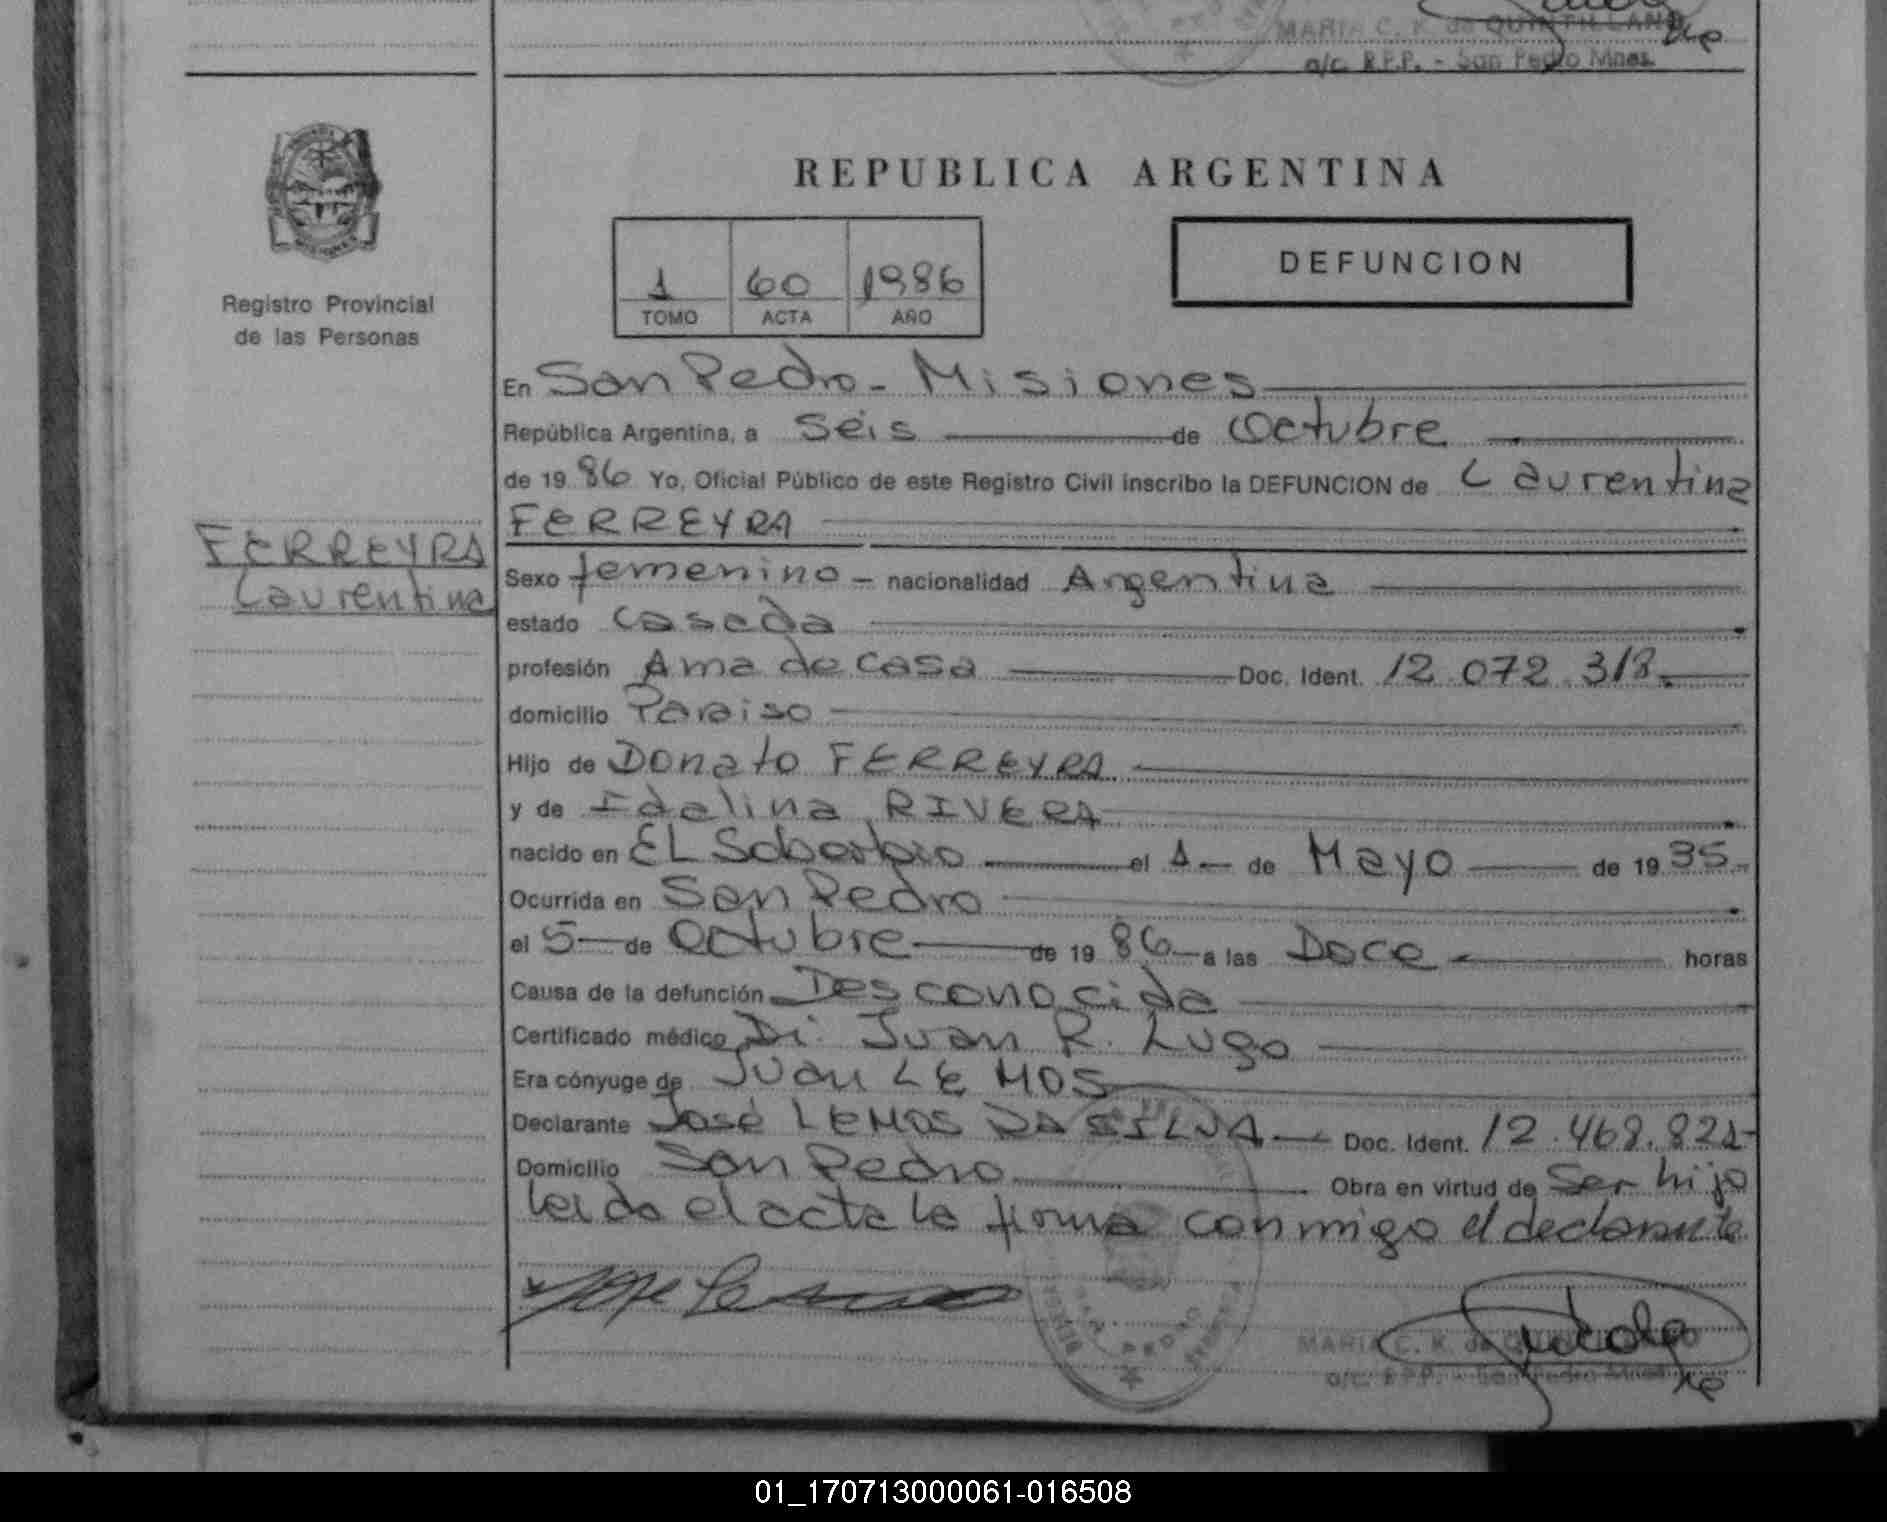 MARIA C. K. de QUINTILLANO
a/c. R.P.P. - San Pedro Mnes.
Registro Provincial
de las Personas
REPUBLICA ARGENTINA
1 60 1986
TOMO ACTA AÑO
DEFUNCION
En San Pedro - Misiones
República Argentina, a Seis de Octubre
de 19 86 Yo, Oficial Público de este Registro Civil inscribo la DEFUNCION de Laurentina
FERREYRA
FERREYRA
Laurentina
Sexo femenino - nacionalidad Argentina
estado Casada
profesión Ama de casa Doc. Ident. 12.072.318.
domicilio Paraiso
Hijo de Donato FERREYRA
y de Idalina RIVERA
nacido en EL Soberbio el 1 de Mayo de 19 35
Ocurrida en San Pedro
el 5 de Octubre de 19 86 a las Doce horas
Causa de la defunción Desconocida
Certificado médico Dr. Juan R. Lugo
Era cónyuge de Juan LEMOS
Declarante José LEMOS DA SILVA Doc. Ident. 12.468.821
Domicilio San Pedro Obra en virtud de Ser hijo
leida el acta la firma conmigo el declarante
MARIA C. K. de QUINTILLANO
a/c. R.P.P. - San Pedro Mnes
01_170713000061-016508